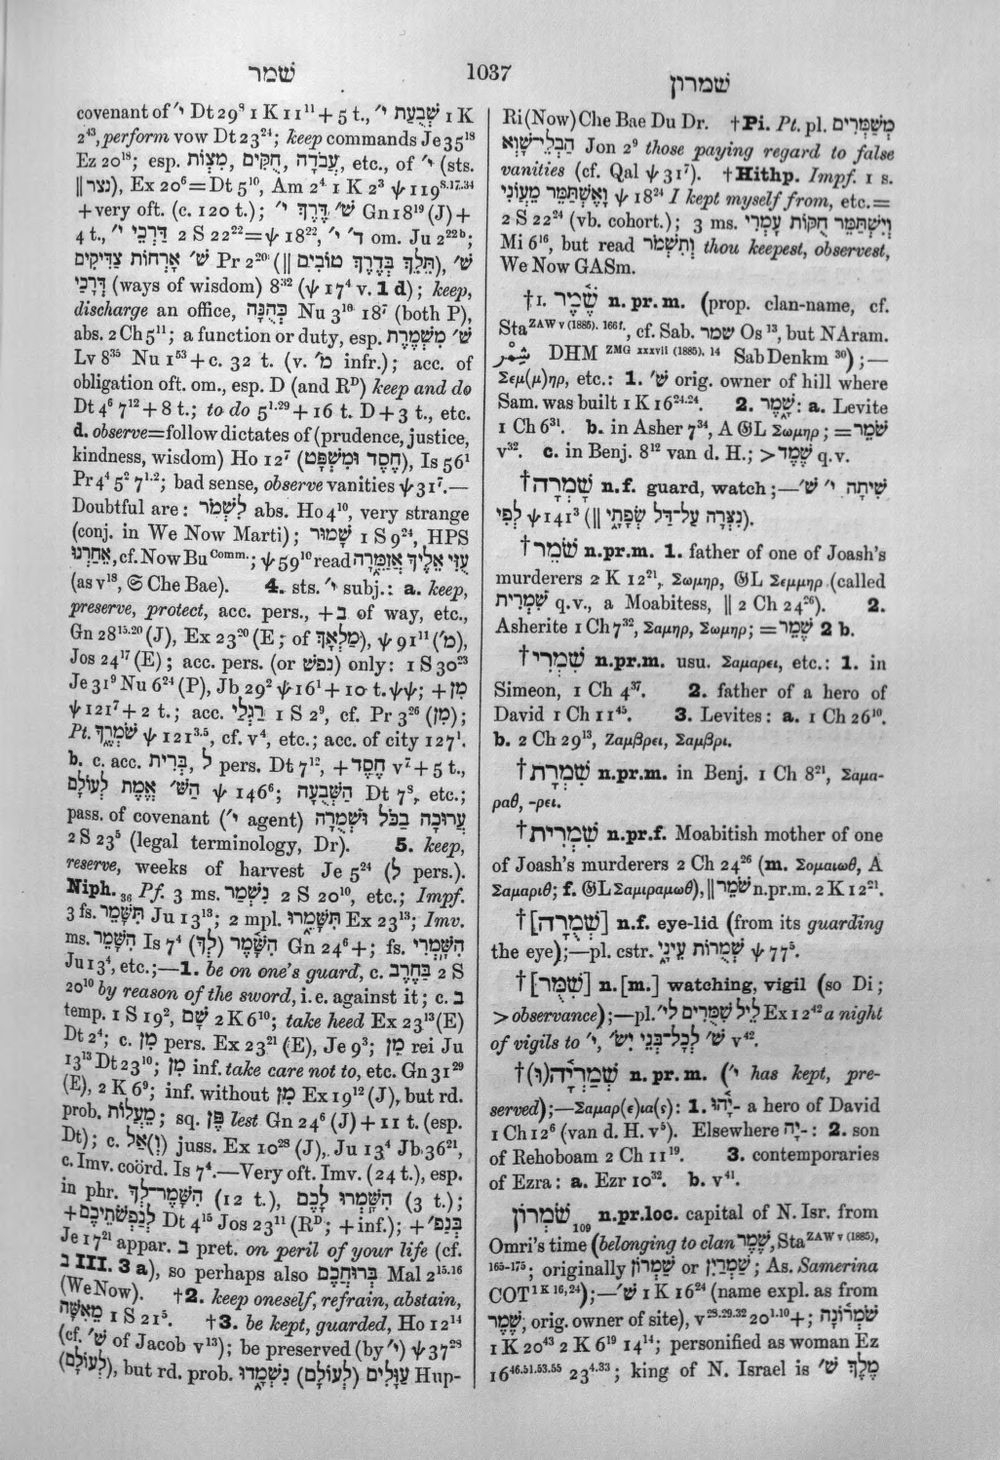 שמר
1037
שמרון
covenant of י׳ Dt 29⁸ 1 K 11¹¹ + 5 t., שְׁבֻעַת י׳ 1 K
2⁴³, perform vow Dt 23²⁴; keep commands Je 35¹⁸
Ez 20¹⁸; esp. מִצְוֹת, חֻקִּים, עֲבֹדָה, etc., of י׳ (sts.
‖ נצר), Ex 20⁶ = Dt 5¹⁰, Am 2⁴ 1 K 2³ ψ 119⁸·¹⁷·³⁴
+ very oft. (c. 120 t.); שׁ׳ דֶּרֶךְ י׳ Gn 18¹⁹ (J) +
4 t., דַּרְכֵי י׳ 2 S 22²² = ψ 18²², ד׳ י׳ om. Ju 2²²ᵇ;
שׁ׳ אָרְחוֹת צַדִּיקִים Pr 2²⁰ (‖ תֵּלֵךְ בְּדֶרֶךְ טוֹבִים), שׁ׳
דְּרָכַי (ways of wisdom) 8³² (ψ 17⁴ v. 1 d); keep,
discharge an office, כְּהֻנָּה Nu 3¹⁰ 18⁷ (both P),
abs. 2 Ch 5¹¹; a function or duty, esp. שׁ׳ מִשְׁמֶרֶת
Lv 8³⁵ Nu 1⁵³ + c. 32 t. (v. מ׳ infr.); acc. of
obligation oft. om., esp. D (and Rᴰ) keep and do
Dt 4⁶ 7¹² + 8 t.; to do 5¹·²⁹ + 16 t. D + 3 t., etc.
d. observe = follow dictates of (prudence, justice,
kindness, wisdom) Ho 12⁷ (חֶסֶד וּמִשְׁפָּט), Is 56¹
Pr 4⁴ 5² 7¹·²; bad sense, observe vanities ψ 31⁷.—
Doubtful are: לִשְׁמֹר abs. Ho 4¹⁰, very strange
(conj. in We Now Marti); שָׁמוּר 1 S 9²⁴, HPS
אַחֲרֵנוּ, cf. Now Bu Comm.; ψ 59¹⁰ read עֻזִּי אֵלֶיךָ אֲזַמֵּרָה
(as v¹⁸, 𝔖 Che Bae). 4. sts. י׳ subj.: a. keep,
preserve, protect, acc. pers., + ב of way, etc.,
Gn 28¹⁵·²⁰ (J), Ex 23²⁰ (E; of מַלְאָךְ), ψ 91¹¹ (מ׳),
Jos 24¹⁷ (E); acc. pers. (or נפשׁ) only: 1 S 30²³
Je 31⁹ Nu 6²⁴ (P), Jb 29² ψ 16¹ + 10 t. ψψ; + מִן
ψ 121⁷ + 2 t.; acc. רַגְלֵי 1 S 2⁹, cf. Pr 3²⁶ (מִן);
Pt. שֹׁמְרֶךָ ψ 121³·⁵, cf. v⁴, etc.; acc. of city 127¹.
b. c. acc. בְּרִית, לְ pers. Dt 7¹², + חֶסֶד v⁷ + 5 t.,
הַשׁ׳ אֱמֶת לְעוֹלָם ψ 146⁶; הַשְּׁבֻעָה Dt 7⁸, etc.;
pass. of covenant (י׳ agent) עֲרוּכָה בַכֹּל וּשְׁמֻרָה
2 S 23⁵ (legal terminology, Dr). 5. keep,
reserve, weeks of harvest Je 5²⁴ (לְ pers.).
Niph.₃₆ Pf. 3 ms. נִשְׁמַר 2 S 20¹⁰, etc.; Impf.
3 fs. תִּשָּׁמֵר Ju 13¹³; 2 mpl. תִּשָּׁמֵרוּ Ex 23¹³; Imv.
ms. הִשָּׁמֵר Is 7⁴ הִשָּׁמֶר (לְךָ) Gn 24⁶ +; fs. הִשָּׁמְרִי
Ju 13⁴, etc.;—1. be on one's guard, c. בַּחֶרֶב 2 S
20¹⁰ by reason of the sword, i.e. against it; c. ב
temp. 1 S 19², שָׁם 2 K 6¹⁰; take heed Ex 23¹³ (E)
Dt 2⁴; c. מִן pers. Ex 23²¹ (E), Je 9³; מִן rei Ju
13¹³ Dt 23¹⁰; מִן inf. take care not to, etc. Gn 31²⁹
(E), 2 K 6⁹; inf. without מִן Ex 19¹² (J), but rd.
prob. מֵעֲלוֹת; sq. פֶּן lest Gn 24⁶ (J) + 11 t. (esp.
Dt); c. אַל(וְ) juss. Ex 10²⁸ (J), Ju 13⁴ Jb 36²¹,
c. Imv. coörd. Is 7⁴.—Very oft. Imv. (24 t.), esp.
in phr. הִשָּׁמֶר־לְךָ (12 t.), הִשָּׁמְרוּ לָכֶם (3 t.);
+ לְנַפְשֹׁתֵיכֶם Dt 4¹⁵ Jos 23¹¹ (Rᴰ; + inf.); + בְּנַפ׳
Je 17²¹ appar. ב pret. on peril of your life (cf.
ב III. 3 a), so perhaps also בְּרוּחֲכֶם Mal 2¹⁵·¹⁶
(We Now). †2. keep oneself, refrain, abstain,
מֵאִשָּׁה 1 S 21⁵. †3. be kept, guarded, Ho 12¹⁴
(cf. שׁ׳ of Jacob v¹³); be preserved (by י׳) ψ 37²⁸
(לְעוֹלָם), but rd. prob. עַוָּלִים (לְעוֹלָם) נִשְׁמָדוּ Hup-
Ri (Now) Che Bae Du Dr. †Pi. Pt. pl. מְשַׁמְּרִים
הַבְלֵי־שָׁוְא Jon 2⁹ those paying regard to false
vanities (cf. Qal ψ 31⁷). †Hithp. Impf. 1 s.
וָאֶשְׁתַּמֵּר מֵעֲוֺנִי ψ 18²⁴ I kept myself from, etc. =
2 S 22²⁴ (vb. cohort.); 3 ms. וְיִשְׁתַּמֵּר חֻקּוֹת עָמְרִי
Mi 6¹⁶, but read וַתִּשְׁמֹר thou keepest, observest,
We Now GASm.
†I. שֶׁמֶר n. pr. m. (prop. clan-name, cf.
Sta ZAW v (1885). 166 f., cf. Sab. שמר Os ¹³, but NAram.
شِمْر DHM ZMG xxxvii (1885). 14 Sab Denkm ³⁰);—
Σεμ(μ)ηρ, etc.: 1. שׁ׳ orig. owner of hill where
Sam. was built 1 K 16²⁴·²⁴. 2. שֶׁמֶר: a. Levite
1 Ch 6³¹. b. in Asher 7³⁴, A 𝔊L Σωμηρ; = שֹׁמֵר
v³². c. in Benj. 8¹² van d. H.; > שֶׁמֶד q.v.
†שָׁמְרָה n.f. guard, watch;—שִׁיתָה י׳ שׁ׳
לְפִי ψ 141³ (‖ נִצְּרָה עַל־דַּל שְׂפָתָי).
†שֹׁמֵר n.pr.m. 1. father of one of Joash's
murderers 2 K 12²¹, Σωμηρ, 𝔊L Σεμμηρ (called
שִׁמְרִית q.v., a Moabitess, ‖ 2 Ch 24²⁶). 2.
Asherite 1 Ch 7³², Σαμηρ, Σωμηρ; = שֶׁמֶר 2 b.
†שִׁמְרִי n.pr.m. usu. Σαμαρει, etc.: 1. in
Simeon, 1 Ch 4³⁷. 2. father of a hero of
David 1 Ch 11⁴⁵. 3. Levites: a. 1 Ch 26¹⁰.
b. 2 Ch 29¹³, Ζαμβρει, Σαμβρι.
†שִׁמְרָת n.pr.m. in Benj. 1 Ch 8²¹, Σαμα-
ραθ, -ρει.
†שִׁמְרִית n.pr.f. Moabitish mother of one
of Joash's murderers 2 Ch 24²⁶ (m. Σομαιωθ, A
Σαμαριθ; f. 𝔊L Σαμιραμωθ), ‖ שֹׁמֵר n.pr.m. 2 K 12²¹.
†[שְׁמֻרָה] n.f. eye-lid (from its guarding
the eye);—pl. cstr. שְׁמֻרוֹת עֵינָי ψ 77⁵.
†[שִׁמֻּר] n.[m.] watching, vigil (so Di;
> observance);—pl. לֵיל שִׁמֻּרִים לי׳ Ex 12⁴² a night
of vigils to י׳, שׁ׳ לְכָל־בְּנֵי יִשׂ׳ v⁴².
†שְׁמַרְיָה(וּ) n. pr. m. (י׳ has kept, pre-
served);—Σαμαρ(ε)ια(ς): 1. ־יָהוּ a hero of David
1 Ch 12⁶ (van d. H. v⁵). Elsewhere ־יָה: 2. son
of Rehoboam 2 Ch 11¹⁹. 3. contemporaries
of Ezra: a. Ezr 10³². b. v⁴¹.
שֹׁמְרוֹן₁₀₉ n.pr.loc. capital of N. Isr. from
Omri's time (belonging to clan שֶׁמֶר, Sta ZAW v (1885),
165-175; originally שָׁמְרוֹן or שָׁמְרַיִן; As. Samerina
COT 1 K 16, 24);—שׁ׳ 1 K 16²⁴ (name expl. as from
שֶׁמֶר, orig. owner of site), v²⁸·²⁹·³² 20¹·¹⁰ +; שֹׁמְרוֹנָה
1 K 20⁴³ 2 K 6¹⁹ 14¹⁴; personified as woman Ez
16⁴⁶·⁵¹·⁵³·⁵⁵ 23⁴·³³; king of N. Israel is מֶלֶךְ שׁ׳